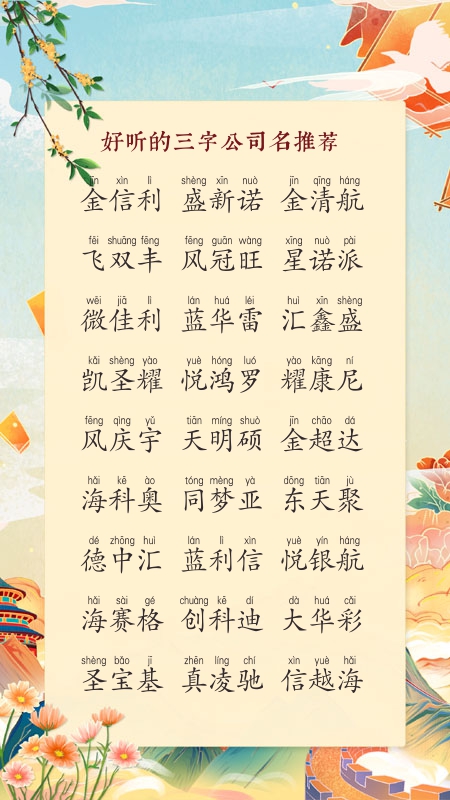 好听的三字公司名推荐
jīn xìn lì shèng xīn nuò jīn qīng háng
金信利 盛新诺 金清航
fēi shuāng fēng fēng guān wàng xīng nuò pài
飞双丰 风冠旺 星诺派
wēi jiā lì lán huá léi huì xīn shèng
微佳利 蓝华雷 汇鑫盛
kǎi shèng yào yuè hóng luó yào kāng ní
凯圣耀 悦鸿罗 耀康尼
fēng qìng yǔ tiān míng shuò jīn chāo dá
风庆宇 天明硕 金超达
hǎi kē ào tóng mèng yà dōng tiān jù
海科奥 同梦亚 东天聚
dé zhōng huì lán lì xìn yuè yín háng
德中汇 蓝利信 悦银航
hǎi sài gé chuàng kē dí dà huá cǎi
海赛格 创科迪 大华彩
shèng bǎo jī zhēn líng chí xìn yuè hǎi
圣宝基 真凌驰 信越海